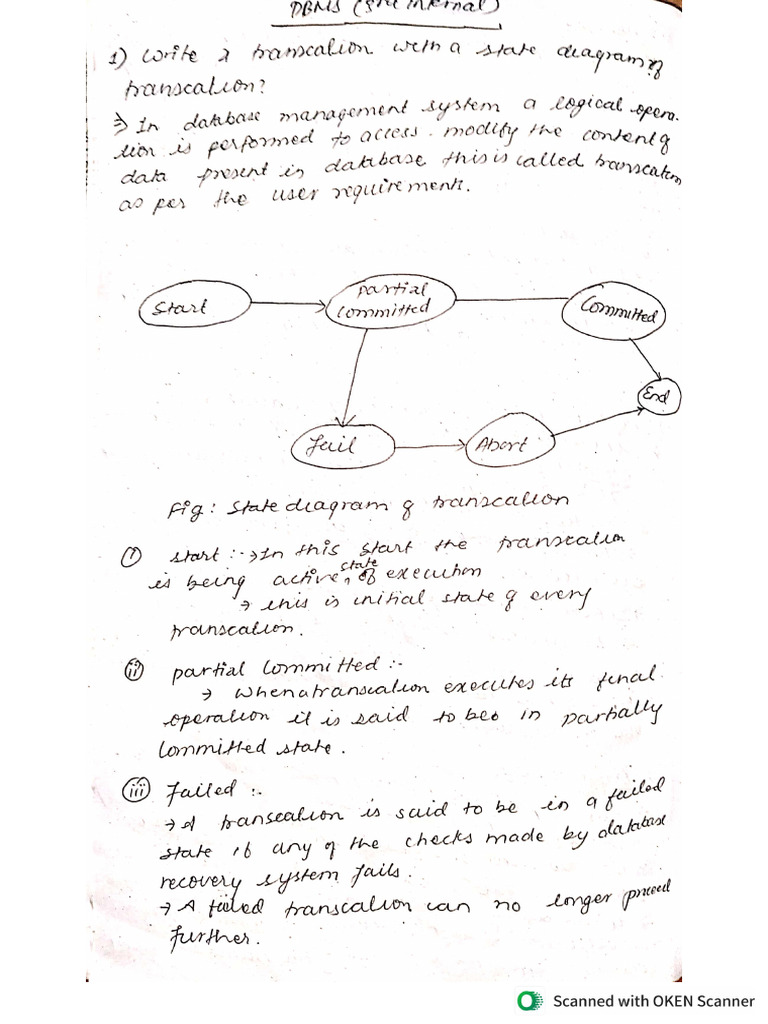 DBMS (3rd Internal)
1) Write a transcation with a state diagram of
transcation?
⇒ In database management system a logical opera-
tion is performed to access. modify the content of
data present in database this is called transcation
as per the user requirement.
Start
Partial
committed
Committed
End
Fail
Abort
Fig: State diagram of transcation
(i) start :-→ In this start the transcation
is being active state of execution
→ this is initial state of every
transcation.
(ii) partial Committed :-
→ When a transcation executes its final
operation it is said to be in partially
Committed state.
(iii) Failed :-
→ A transcation is said to be in a failed
state if any of the checks made by database
recovery system fails.
→ A failed transcation can no longer proceed
further.
Scanned with OKEN Scanner